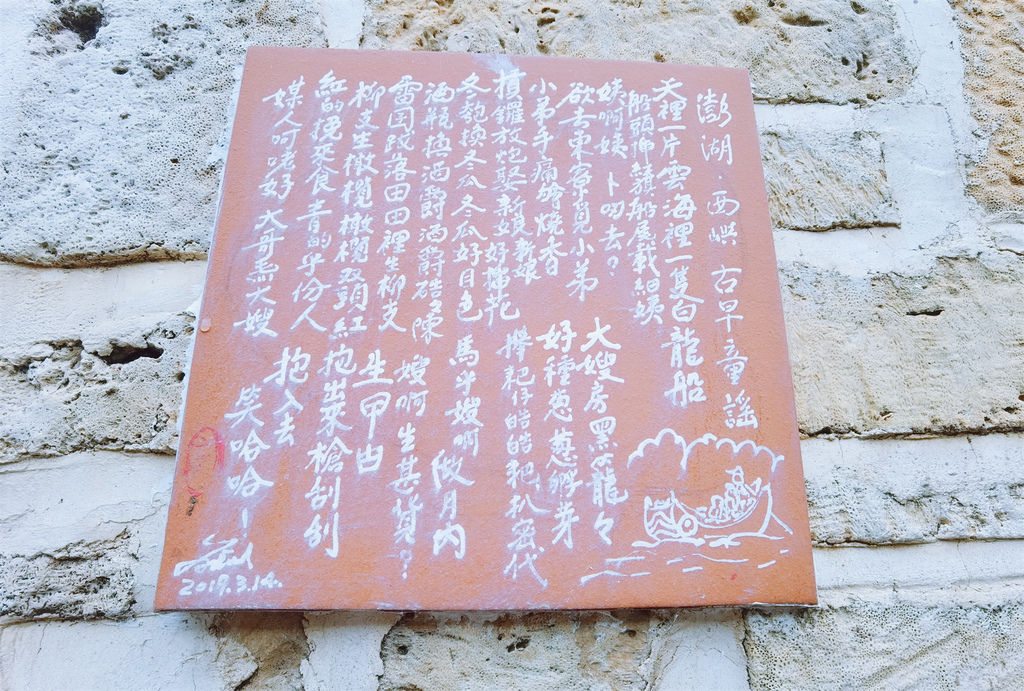 澎湖.西嶼 古早童謠
天裡一片雲海裡一隻白龍船
船頭押 船尾載細姨
姨啊姨 卜叨去?
欲去東寮覓小弟
小弟手痛燒香
槓鑼放炮娶新娘新娘好插花
冬匏換冬瓜冬瓜好目色
酒瓶換酒爵酒爵硞々陳
雷囯跤落田田裡生柳支
柳支生橄欖橄欖双頭紅
紅的挽來食青的乎份人
媒人呵咾好大哥焉大嫂
大嫂房黑龍々
好種葱葱孵芽
攑耙仔皓皓耙扒萬代
馬半嫂啊做月內
嫂啊生甚貨?
生甲由
抱出來槍刮刮
抱入去
笑哈哈!
2019.3.14.